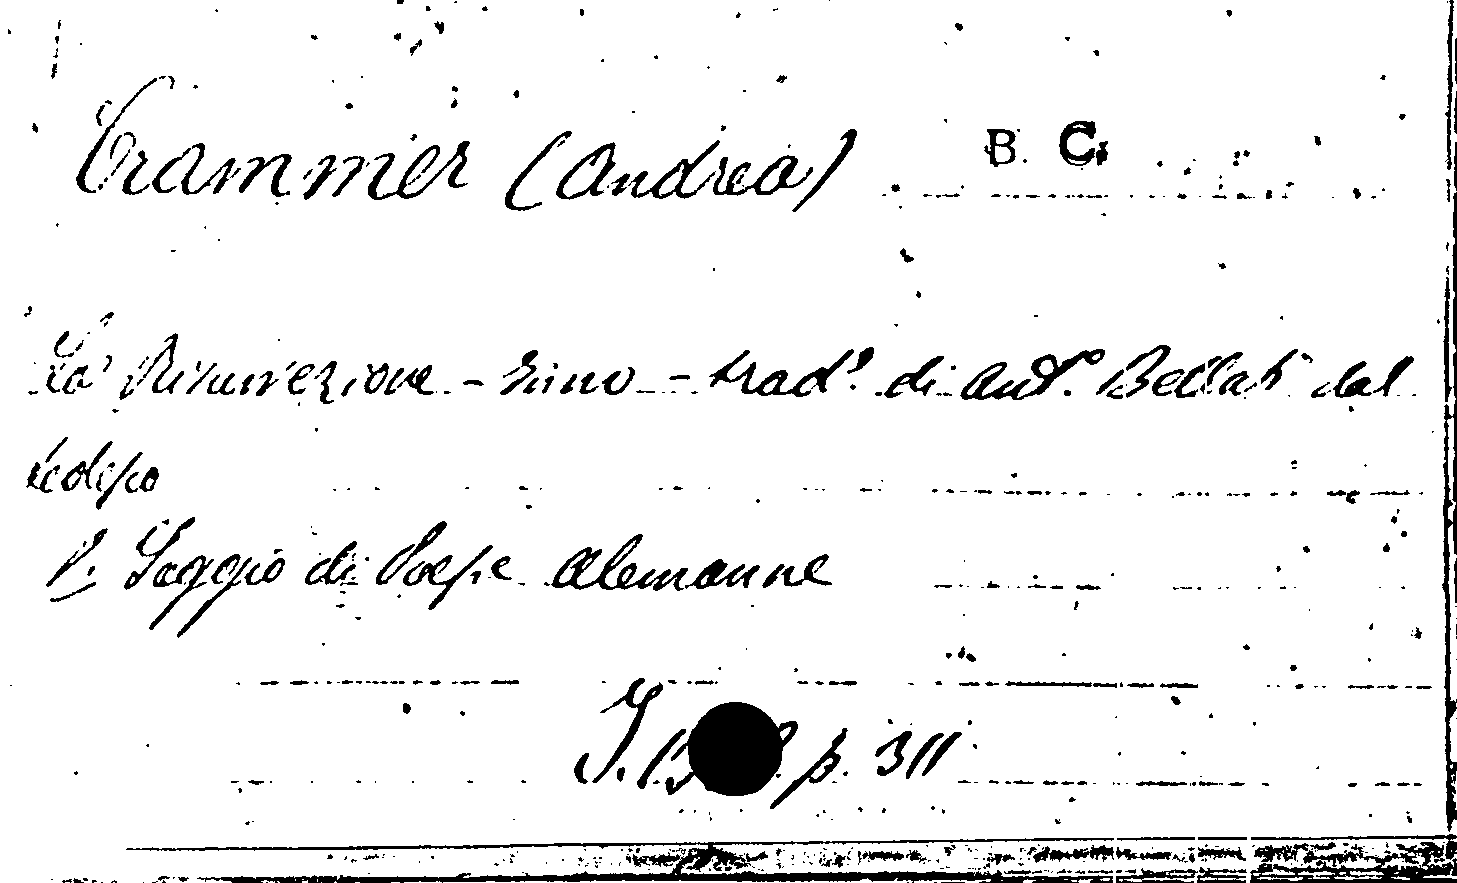 Crammer (Andrea) B. C.
La Risurrezione - Inno - trad.e di Ant.o Bellati dal
tedesco
V. Saggio di Poesie Alemanne
p. 311